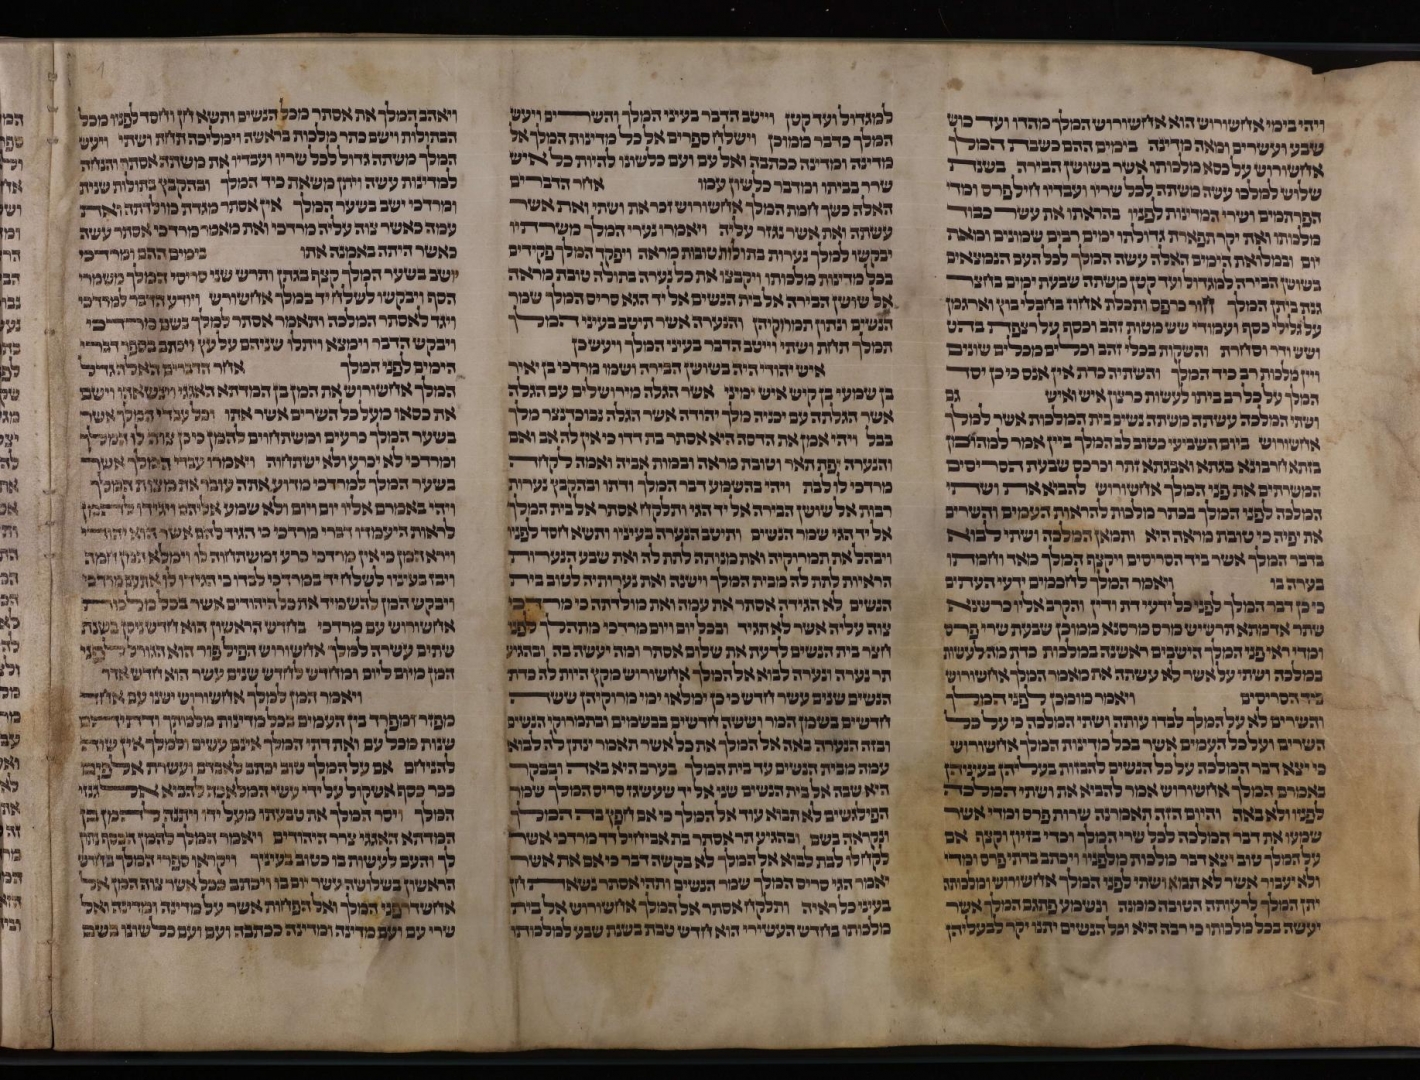 ויהי בימי אחשורוש הוא אחשורוש המלך מהדו ועד כוש
שבע ועשרים ומאה מדינה בימים ההם כשבת המלך
אחשורוש על כסא מלכותו אשר בשושן הבירה בשנת
שלוש למלכו עשה משתה לכל שריו ועבדיו חיל פרס ומדי
הפרתמים ושרי המדינות לפניו בהראתו את עשר כבוד
מלכותו ואת יקר תפארת גדולתו ימים רבים שמונים ומאת
יום ובמלואת הימים האלה עשה המלך לכל העם הנמצאים
בשושן הבירה למגדול ועד קטן משתה שבעת ימים בחצר
גנת ביתן המלך חור כרפס ותכלת אחוז בחבלי בוץ וארגמן
על גלילי כסף ועמודי שש מטות זהב וכסף על רצפת בהט
ושש ודר וסחרת והשקות בכלי זהב וכלים מכלים שונים
ויין מלכות רב כיד המלך והשתיה כדת אין אנס כי כן יסד
המלך על כל רב ביתו לעשות כרצון איש ואיש גם
ושתי המלכה עשתה משתה נשים בית המלכות אשר למלך
אחשורוש ביום השביעי כטוב לב המלך ביין אמר למהומן
בזתא חרבונא בגתא ואבגתא זתר וכרכס שבעת הסריסים
המשרתים את פני המלך אחשורוש להביא את ושתי
המלכה לפני המלך בכתר מלכות להראות העמים והשרים
את יפיה כי טובת מראה היא ותמאן המלכה ושתי לבוא
בדבר המלך אשר ביד הסריסים ויקצף המלך מאד וחמתו
בערה בו ויאמר המלך לחכמים ידעי העתים
כי כן דבר המלך לפני כל ידעי דת ודין והקרב אליו כרשנא
שתר אדמתא תרשיש מרס מרסנא ממוכן שבעת שרי פרס
ומדי ראי פני המלך הישבים ראשנה במלכות כדת מה לעשות
במלכה ושתי על אשר לא עשתה את מאמר המלך אחשורוש
ביד הסריסים ויאמר מומכן לפני המלך
והשרים לא על המלך לבדו עותה ושתי המלכה כי על כל
השרים ועל כל העמים אשר בכל מדינות המלך אחשורוש
כי יצא דבר המלכה על כל הנשים להבזות בעליהן בעיניהן
באמרם המלך אחשורוש אמר להביא את ושתי המלכה
לפניו ולא באה והיום הזה תאמרנה שרות פרס ומדי אשר
שמעו את דבר המלכה לכל שרי המלך וכדי בזיון וקצף אם
על המלך טוב יצא דבר מלכות מלפניו ויכתב בדתי פרס ומדי
ולא יעבור אשר לא תבוא ושתי לפני המלך אחשורוש ומלכותה
יתן המלך לרעותה הטובה ממנה ונשמע פתגם המלך אשר
יעשה בכל מלכותו כי רבה היא וכל הנשים יתנו יקר לבעליהן
למגדול ועד קטן וייטב הדבר בעיני המלך והשרים ויעש
המלך כדבר ממוכן וישלח ספרים אל כל מדינות המלך אל
מדינה ומדינה ככתבה ואל עם ועם כלשונו להיות כל איש
שרר בביתו ומדבר כלשון עמו אחר הדברים
האלה כשך חמת המלך אחשורוש זכר את ושתי ואת אשר
עשתה ואת אשר נגזר עליה ויאמרו נערי המלך משרתיו
יבקשו למלך נערות בתולות טובות מראה ויפקד המלך פקידים
בכל מדינות מלכותו ויקבצו את כל נערה בתולה טובת מראה
אל שושן הבירה אל בית הנשים אל יד הגא סריס המלך שמר
הנשים ונתון תמרוקיהן והנערה אשר תיטב בעיני המלך
המלך תחת ושתי וייטב הדבר בעיני המלך ויעש כן
איש יהודי היה בשושן הבירה ושמו מרדכי בן יאיר
בן שמעי בן קיש איש ימיני אשר הגלה מירושלים עם הגלה
אשר הגלתה עם יכניה מלך יהודה אשר הגלה נבוכדנצר מלך
בבל ויהי אמן את הדסה היא אסתר בת דדו כי אין לה אב ואם
והנערה יפת תאר וטובת מראה ובמות אביה ואמה לקחה
מרדכי לו לבת ויהי בהשמע דבר המלך ודתו ובהקבץ נערות
רבות אל שושן הבירה אל יד הגי ותלקח אסתר אל בית המלך
אל יד הגי שמר הנשים ותיטב הנערה בעיניו ותשא חסד לפניו
ויבהל את תמרוקיה ואת מנותה לתת לה ואת שבע הנערות
הראיות לתת לה מבית המלך וישנה ואת נערותיה לטוב בית
הנשים לא הגידה אסתר את עמה ואת מולדתה כי מרדכי
צוה עליה אשר לא תגיד ובכל יום ויום מרדכי מתהלך לפני
חצר בית הנשים לדעת את שלום אסתר ומה יעשה בה ובהגיע
תר נערה ונערה לבוא אל המלך אחשורוש מקץ היות לה כדת
הנשים שנים עשר חדש כי כן ימלאו ימי מרוקיהן ששה
חדשים בשמן המר וששה חדשים בבשמים ובתמרוקי הנשים
ובזה הנערה באה אל המלך את כל אשר תאמר ינתן לה לבוא
עמה מבית הנשים עד בית המלך בערב היא באה ובבקר
היא שבה אל בית הנשים שני אל יד שעשגז סריס המלך שמר
הפילגשים לא תבוא עוד אל המלך כי אם חפץ בה המלך
ונקראה בשם ובהגיע תר אסתר בת אביחיל דד מרדכי אשר
לקח לו לבת לבוא אל המלך לא בקשה דבר כי אם את אשר
יאמר הגי סריס המלך שמר הנשים ותהי אסתר נשאת חן
בעיני כל ראיה ותלקח אסתר אל המלך אחשורוש אל בית
מלכותו בחדש העשירי הוא חדש טבת בשנת שבע למלכותו
ויאהב המלך את אסתר מכל הנשים ותשא חן וחסד לפניו מכל
הבתולות וישם כתר מלכות בראשה וימליכה תחת ושתי ויעש
המלך משתה גדול לכל שריו ועבדיו את משתה אסתר והנחה
למדינות עשה ויתן משאת כיד המלך ובהקבץ בתולות שנית
ומרדכי ישב בשער המלך אין אסתר מגדת מולדתה ואת
עמה כאשר צוה עליה מרדכי ואת מאמר מרדכי אסתר עשה
כאשר היתה באמנה אתו בימים ההם ומרדכי
יושב בשער המלך קצף בגתן ותרש שני סריסי המלך משמרי
הסף ויבקשו לשלח יד במלך אחשורוש ויודע הדבר למרדכי
ויגד לאסתר המלכה ותאמר אסתר למלך בשם מרדכי
ויבקש הדבר וימצא ויתלו שניהם על עץ ויכתב בספר דברי
הימים לפני המלך אחר הדברים האלה גדל
המלך אחשורוש את המן בן המדתא האגגי וינשאהו וישם
את כסאו מעל כל השרים אשר אתו וכל עבדי המלך אשר
בשער המלך כרעים ומשתחוים להמן כי כן צוה לו המלך
ומרדכי לא יכרע ולא ישתחוה ויאמרו עבדי המלך אשר
בשער המלך למרדכי מדוע אתה עובר את מצות המלך
ויהי באמרם אליו יום ויום ולא שמע אליהם ויגידו להמן
לראות היעמדו דברי מרדכי כי הגיד להם אשר הוא יהודי
וירא המן כי אין מרדכי כרע ומשתחוה לו וימלא המן חמה
ויבז בעיניו לשלח יד במרדכי לבדו כי הגידו לו את עם מרדכי
ויבקש המן להשמיד את כל היהודים אשר בכל מלכות
אחשורוש עם מרדכי בחדש הראשון הוא חדש ניסן בשנת
שתים עשרה למלך אחשורוש הפיל פור הוא הגורל לפני
המן מיום ליום ומחדש לחדש שנים עשר הוא חדש אדר
ויאמר המן למלך אחשורוש ישנו עם אחד
מפזר ומפרד בין העמים בכל מדינות מלכותך ודתיהם
שנות מכל עם ואת דתי המלך אינם עשים ולמלך אין שוה
להניחם אם על המלך טוב יכתב לאבדם ועשרת אלפים
ככר כסף אשקול על ידי עשי המלאכה להביא אל גנזי
המלך ויסר המלך את טבעתו מעל ידו ויתנה להמן בן
המדתא האגגי צרר היהודים ויאמר המלך להמן הכסף נתון
לך והעם לעשות בו כטוב בעיניך ויקראו ספרי המלך בחדש
הראשון בשלושה עשר יום בו ויכתב ככל אשר צוה המן אל
אחשדרפני המלך ואל הפחות אשר על מדינה ומדינה ואל
שרי עם ועם מדינה ומדינה ככתבה ועם ועם כלשונו בשם